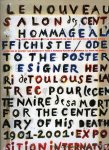 LE NOUVEAU
SALON DES CENT
HOMMAGE À L'A
FFICHISTE/ODE
TO THE POSTER
DESIGNER HEN
RI DE TOULOUSE-LA
UTREC POUR LE CEN
TENAIRE de sa MORT
FOR THE CENTEN
ARY OF HIS DEATH
1901-2001. EXPO
SITION INTERNATI